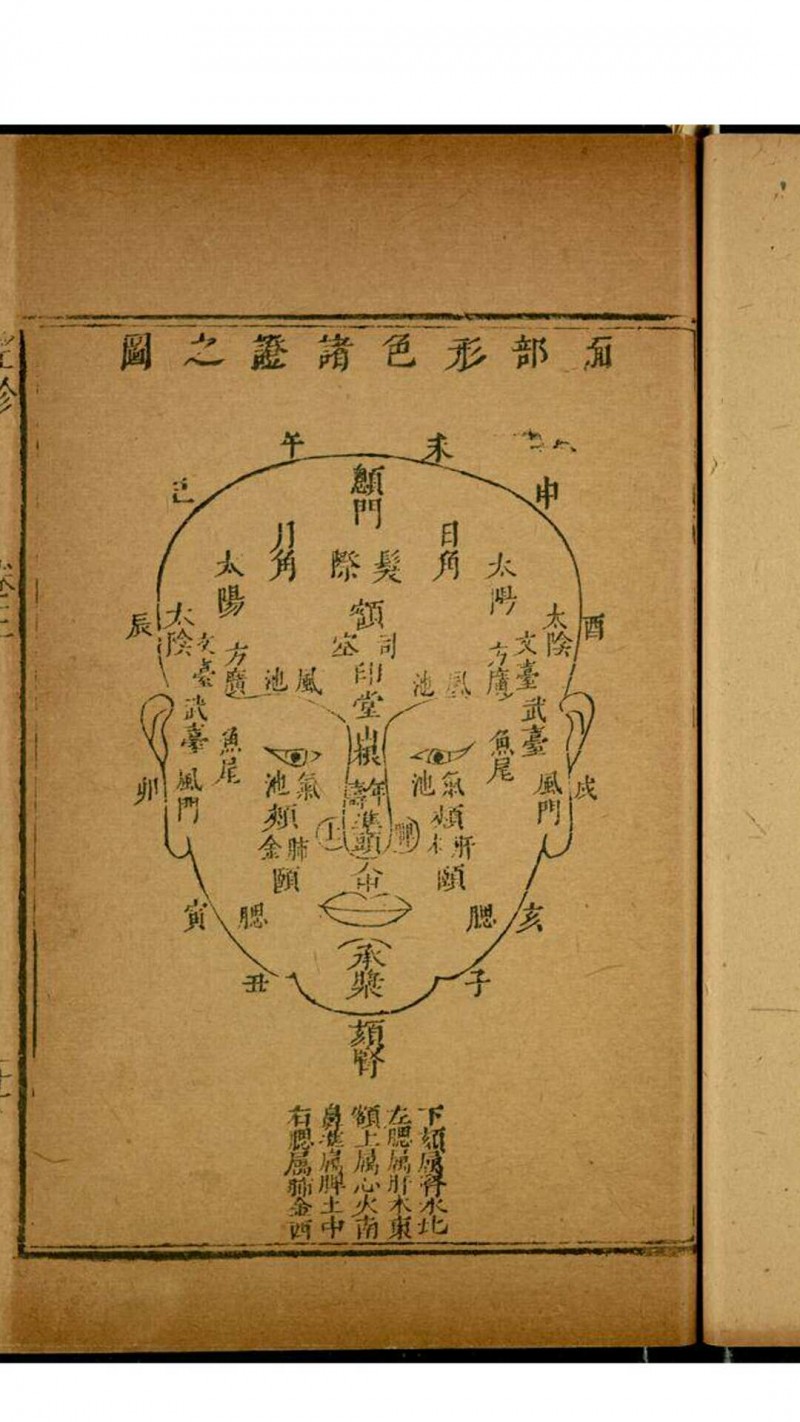 面部形色諸證之圖
午
未
巳
申
顖門
月角
日角
髮際
太陽
太陽
額
辰
酉
太陰
太陰
司空
文臺
文臺
方廣
方廣
印堂
風池
風池
武臺
武臺
山根
魚尾
魚尾
卯
戌
氣池
氣池
風門
風門
年壽
頰
頰
準頭
土
脾
肺金
肝木
人中
頤
頤
寅
腮
腮
亥
承漿
丑
子
頦腎
下頦属腎水北
左腮属肝木東
額上属心火南
鼻準属脾土中
右腮属肺金西